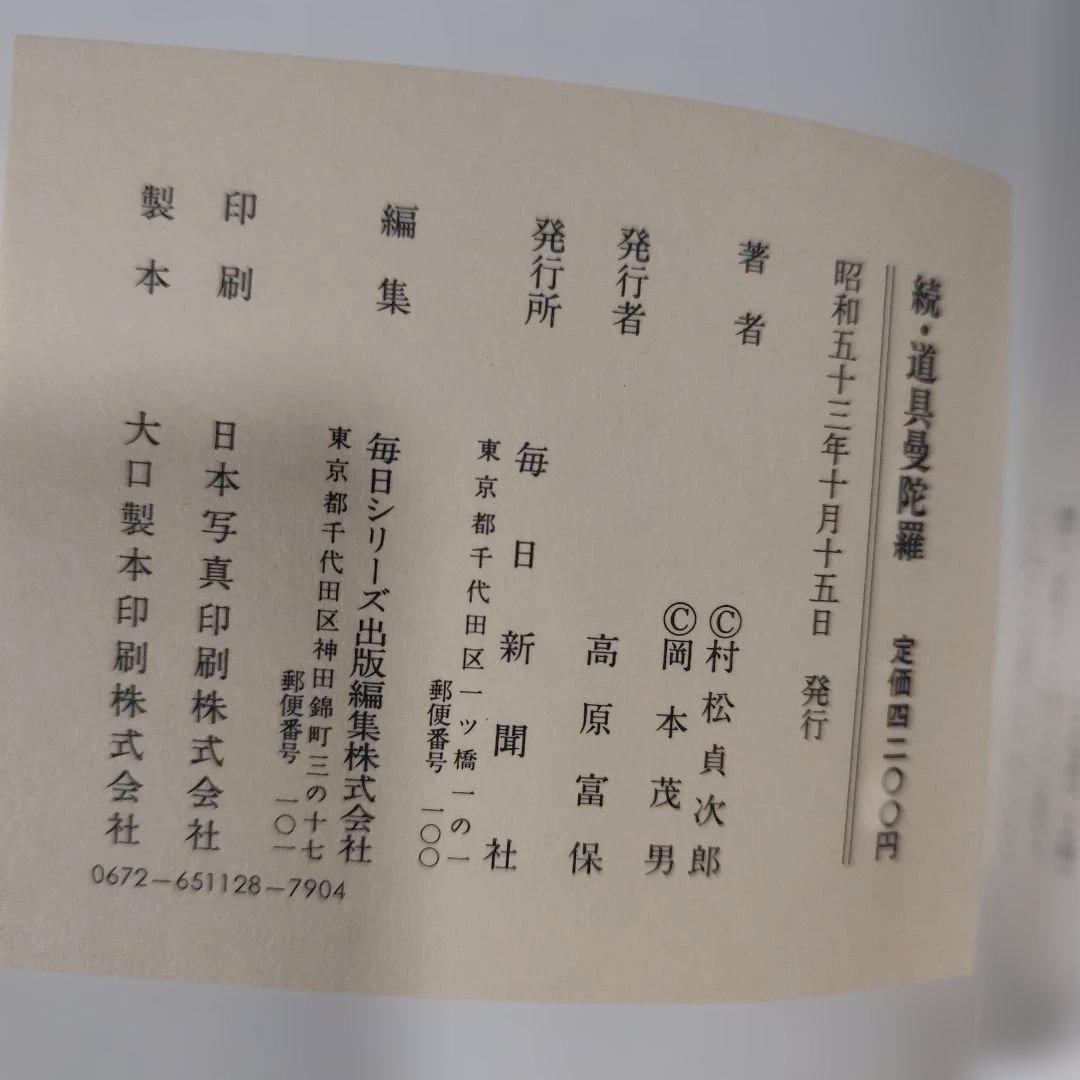 続・道具曼陀羅　定価四二〇〇円
昭和五十三年十月十五日　発行
著者　©村松貞次郎
©岡本茂男
発行者　高原富保
発行所　毎日新聞社
東京都千代田区一ツ橋一の一
郵便番号　一〇〇
編集　毎日シリーズ出版編集株式会社
東京都千代田区神田錦町三の十七
郵便番号　一〇一
印刷　日本写真印刷株式会社
製本　大口製本印刷株式会社
0672−651128−7904